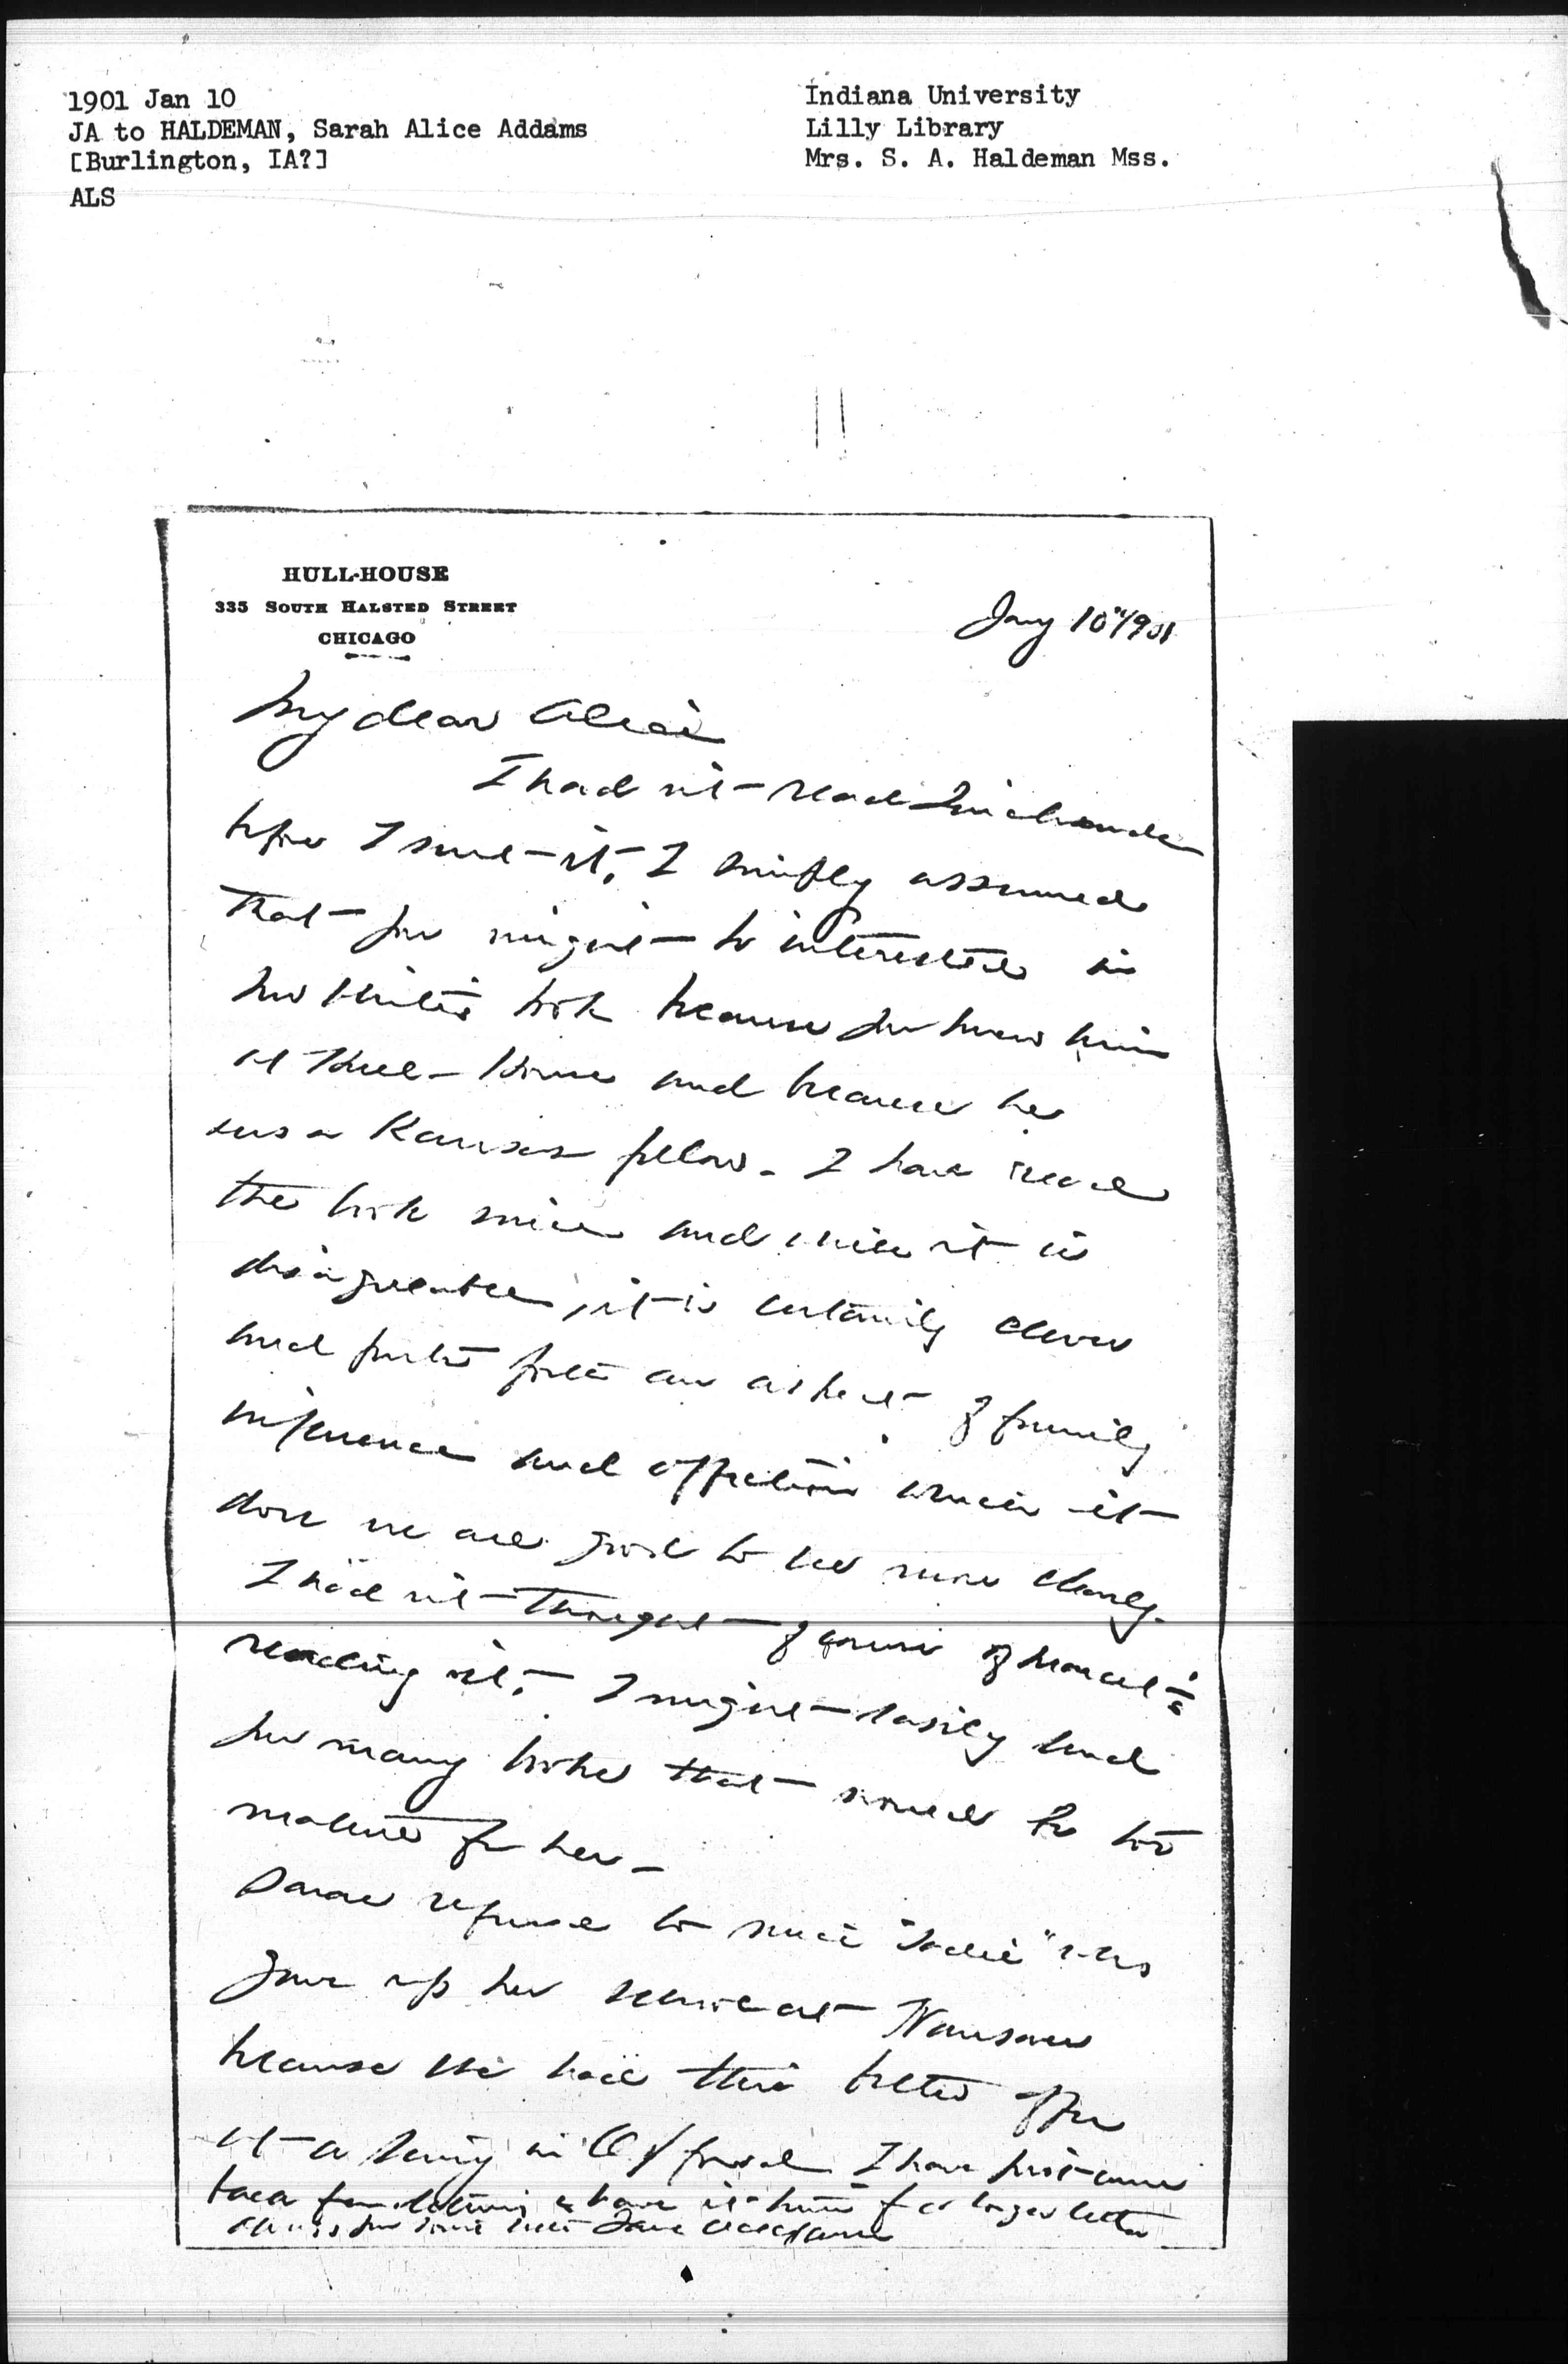 1901 Jan 10
JA to HALDEMAN, Sarah Alice Addams
[Burlington, IA?]
ALS
Indiana University
Lilly Library
Mrs. S. A. Haldeman Mss.
HULL-HOUSE
335 SOUTH HALSTED STREET
CHICAGO
Jany 10" 1901
My dear Alice
I had not read
before I sent it, I simply assumed
that you might be interested in
book because you knew him
at Hull-House and because he
was a Kansas fellow. I have read
the book since and while it is
disagreeable, it is certainly clever
and puts forth an aspect of family
influence and affection which it
does us all good to see more clearly.
I had not thought of course of Marcet's
reading it. I might easily send
you many books that would be too
mature for her —
Sarah refused to "Sadie" who
gave up her
because she had this better offer
at a in I have just come
back from & have not time for a longer letter
Always your loving sister Jane Addams